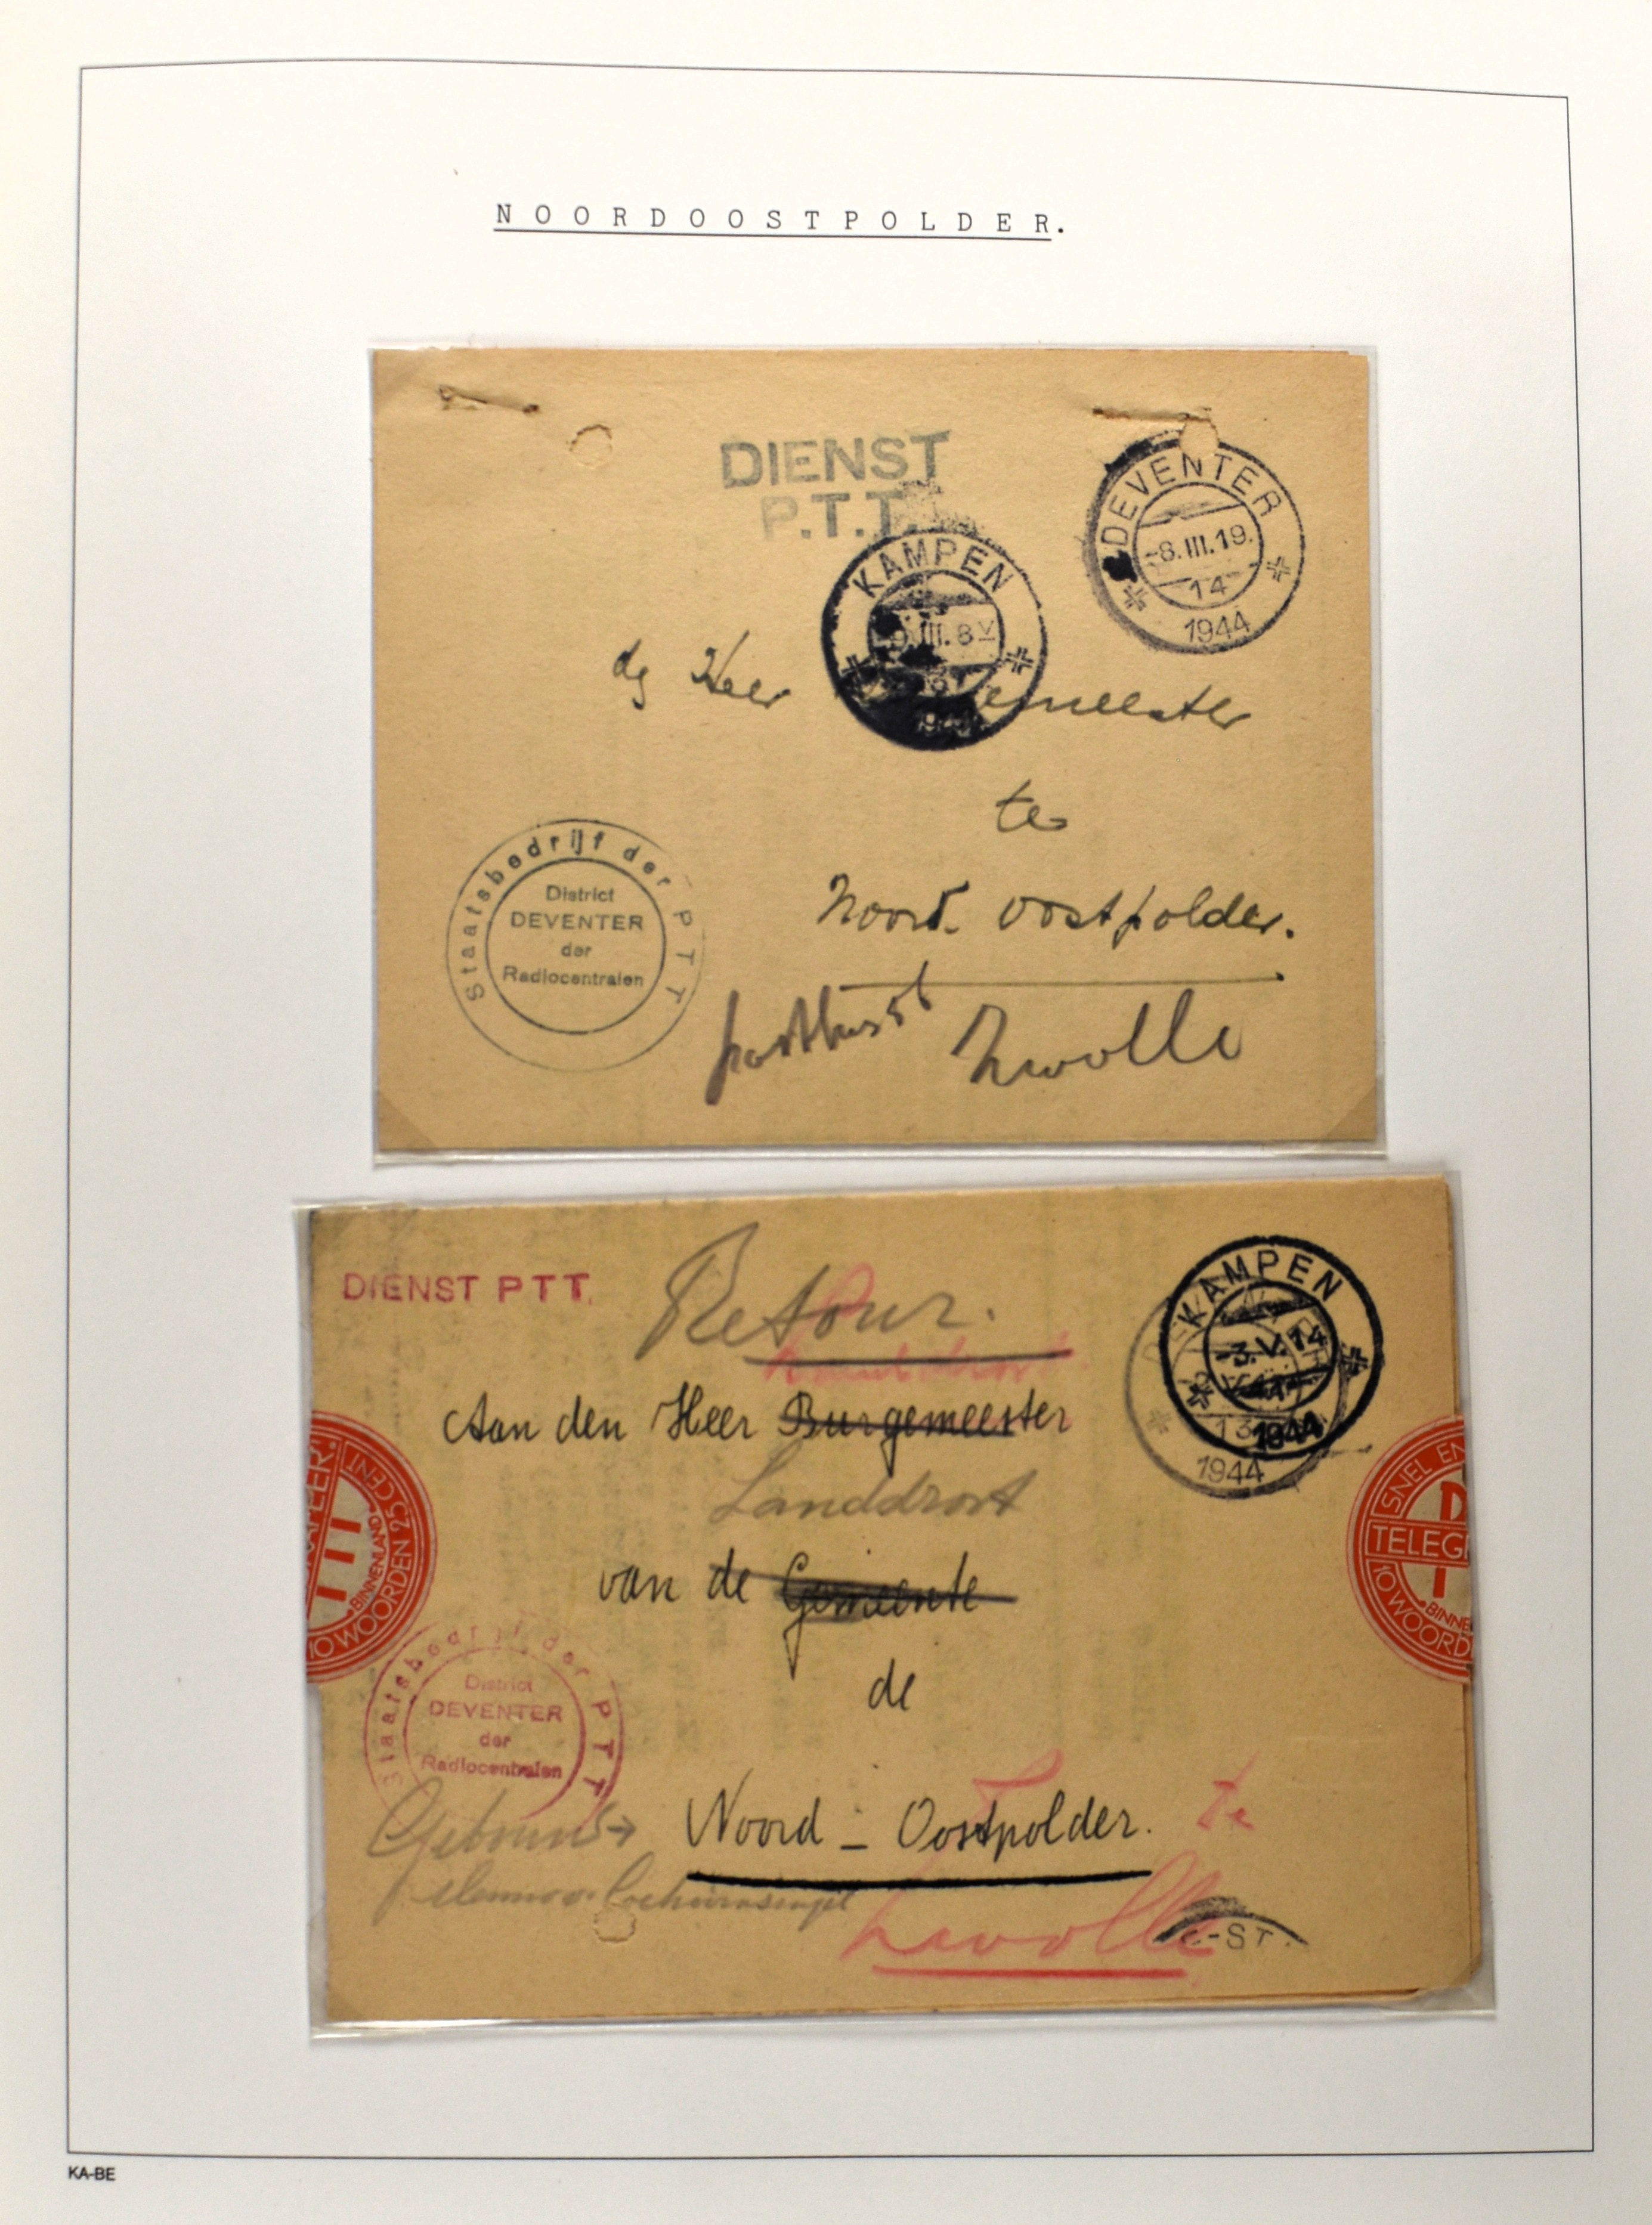 NOORDOOSTPOLDER.
DIENST
P.T.T.
DEVENTER
-8.III.19.
14
1944
KAMPEN
-9.III.8V
1944
Heer emeester
te
Noord. Oostpolder.
Zwolle
Staatsbedrijf der PTT
District
DEVENTER
der
Radiocentralen
DIENST PTT.
Retour.
KAMPEN
-3.V.14
1944
13
1944
Aan den Heer Burgemeester
Landdrost
van de Gemeente
de
Noord - Oostpolder. te
Zwolle
25 CENT
BINNENLAND
10 WOORDEN
SNEL EN
TELEG
BINNE
10 WOORD
Staatsbedrijf der PTT
District
DEVENTER
der
Radiocentralen
-ST.
KA-BE